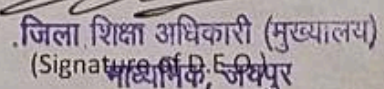 जिला शिक्षा अधिकारी (मुख्यालय)
(Signature of D.E.O.)
माध्यमिक, जयपुर